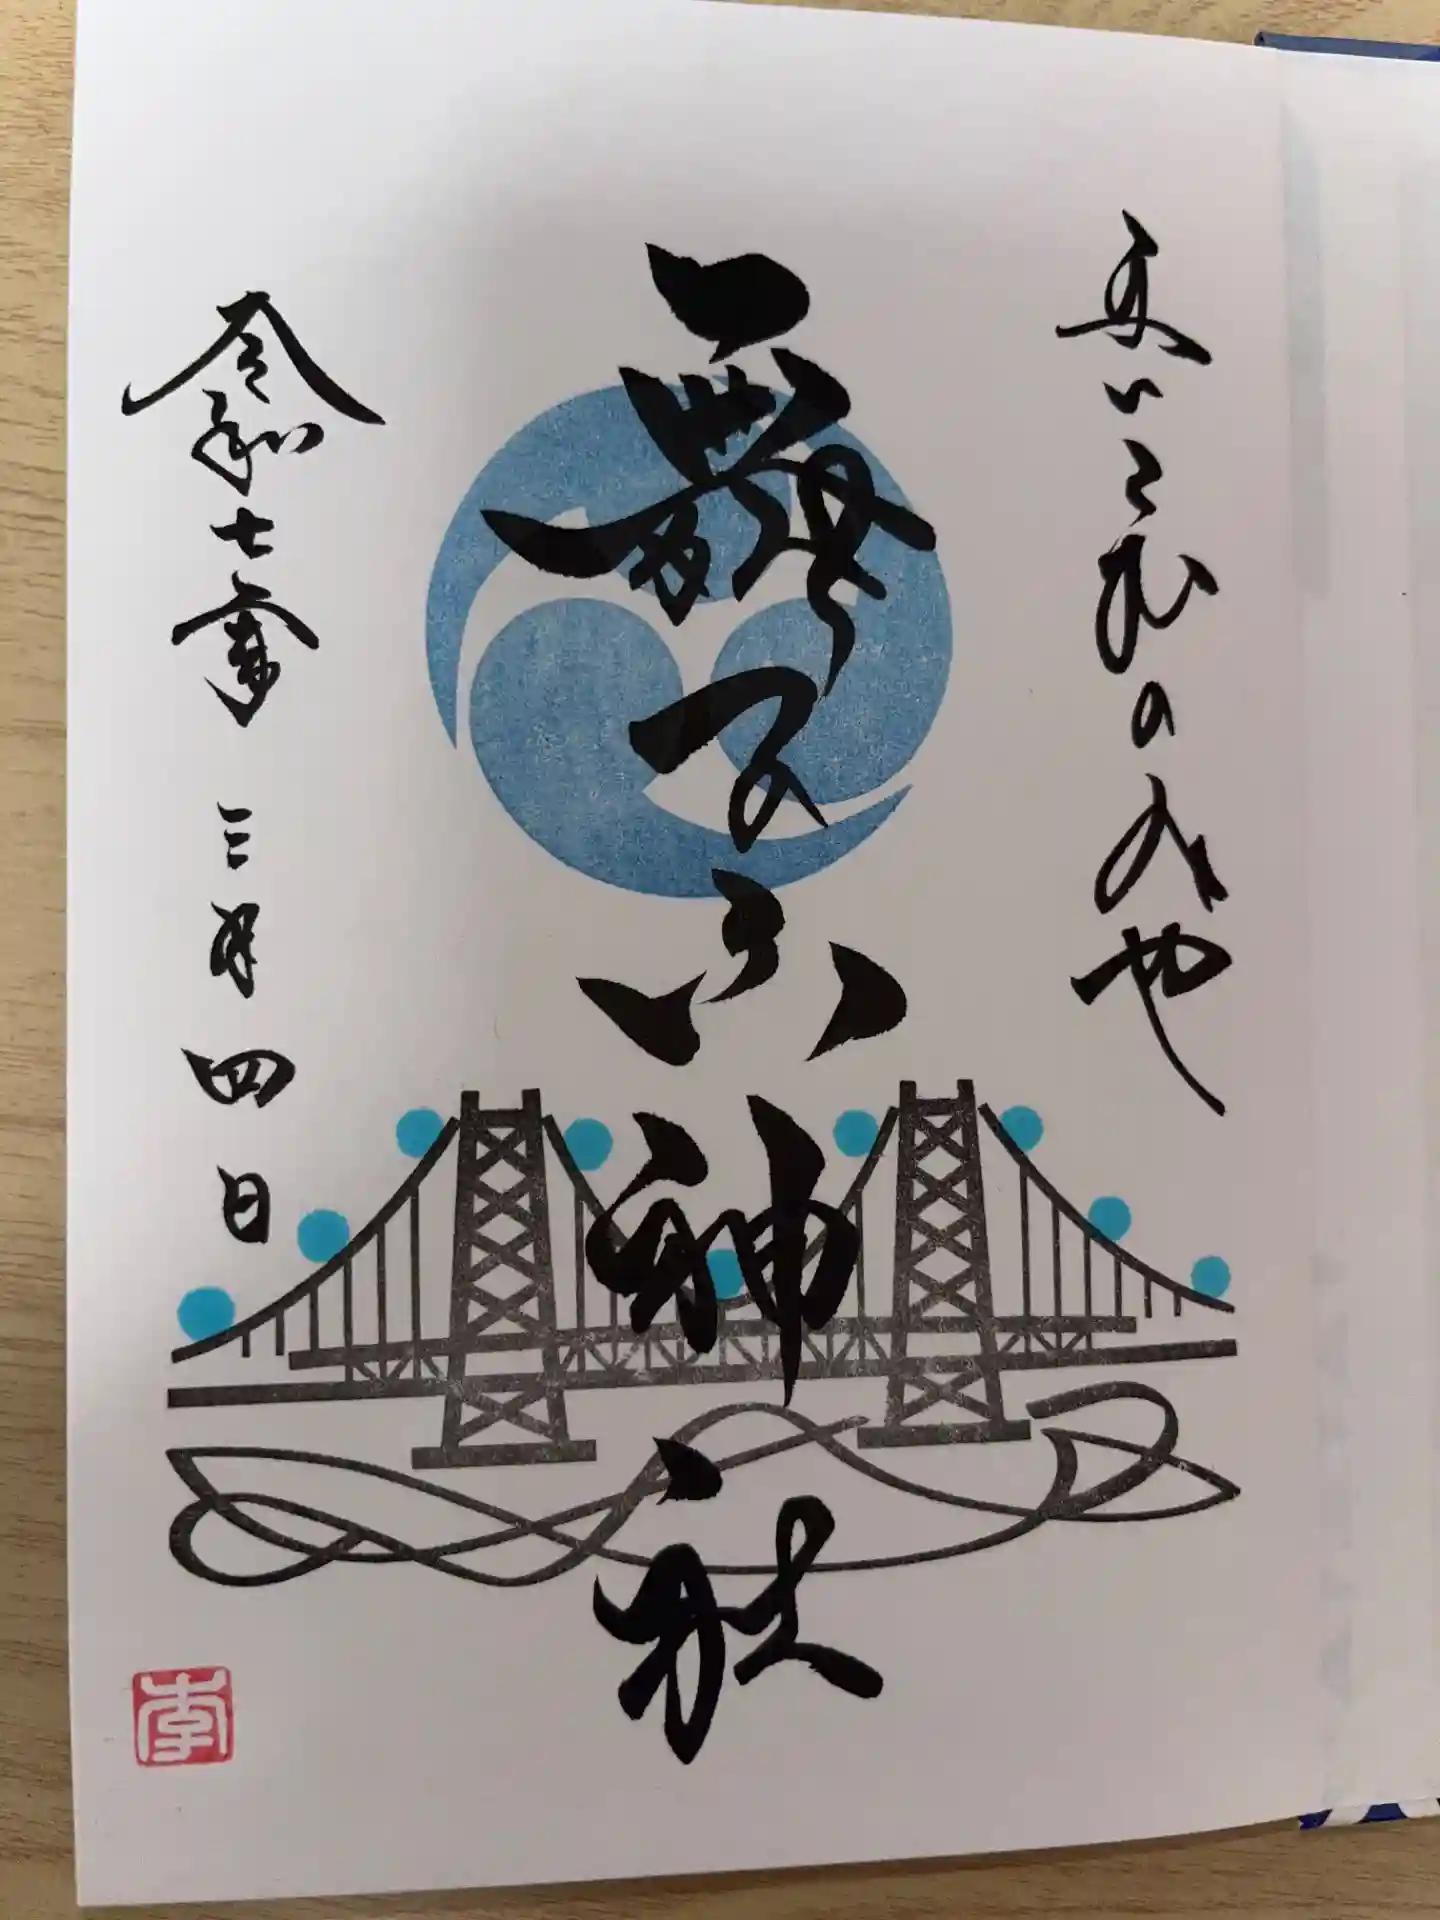 まいこむのみや
舞子六神社
令和七年 三月四日